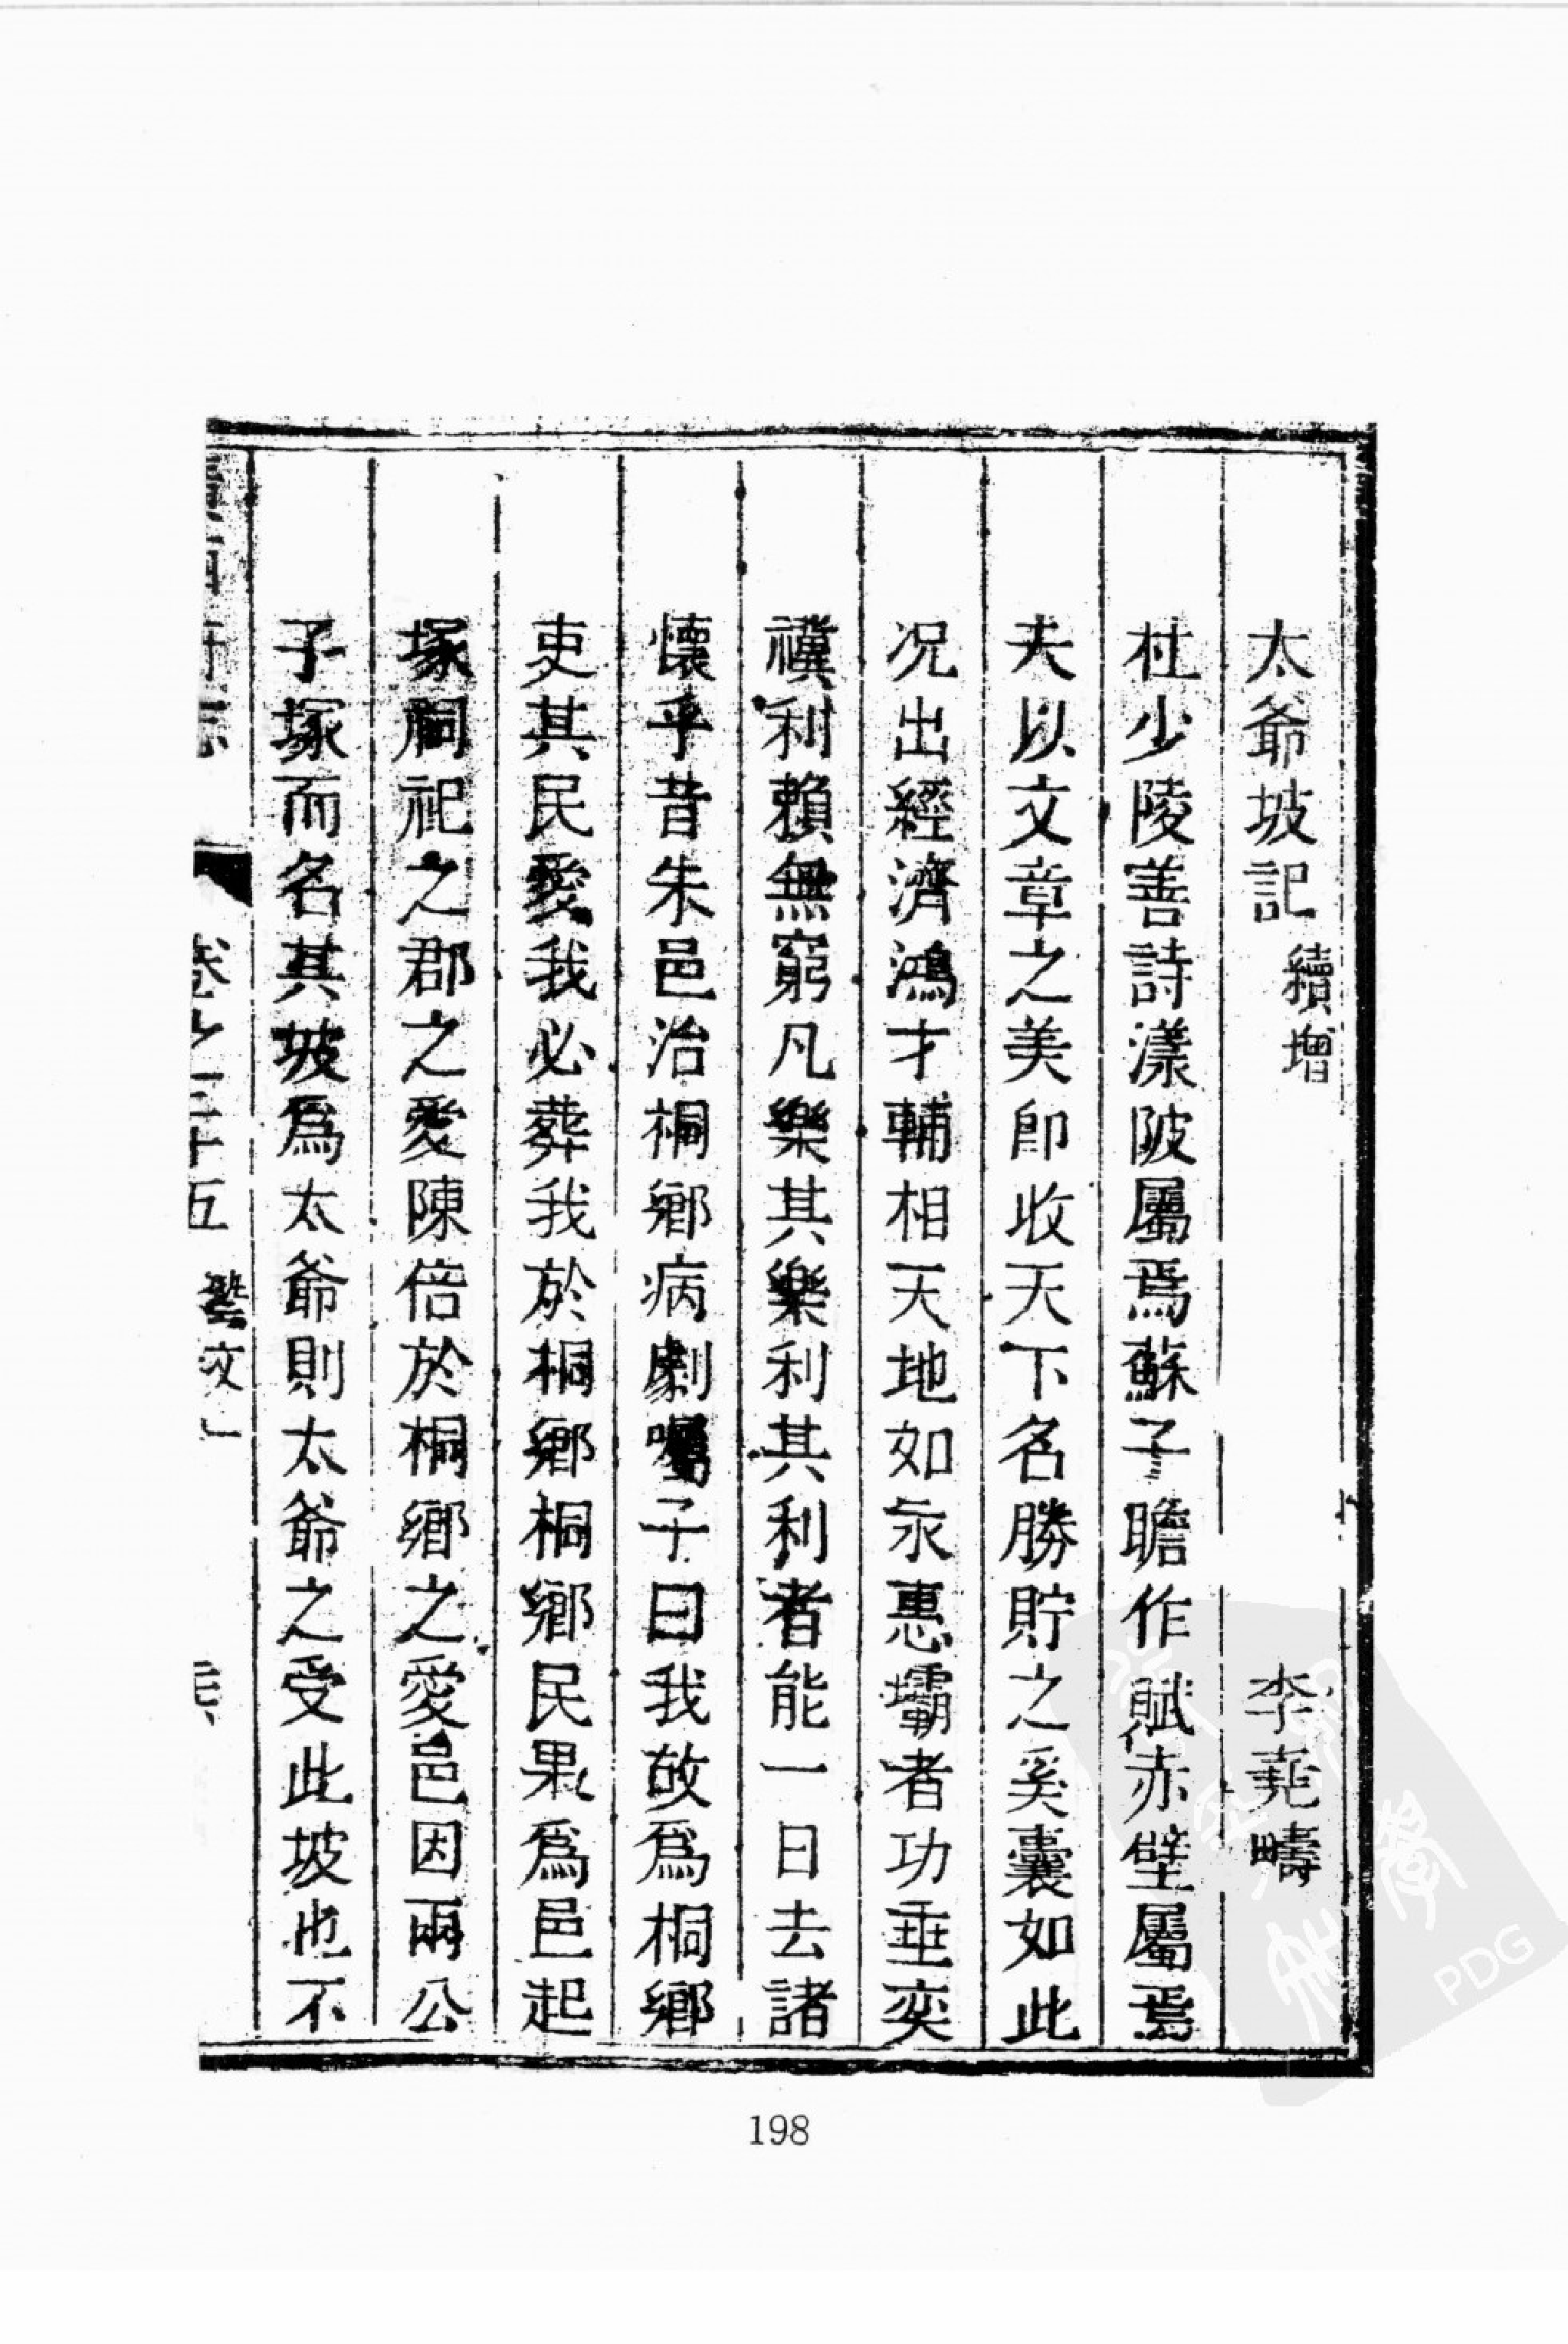 太爺坡記 續增 李堯疇
杜少陵善詩漾陂屬焉蘇子瞻作賦赤壁屬焉
夫以文章之美卽收天下名勝貯之奚囊如此
况出經濟鴻才輔相天地如汞惠壩者功垂奕
禩利賴無窮凡樂其樂利其利者能一日去諸
懷乎昔朱邑治桐鄉病劇囑子曰我故爲桐鄉
吏其民愛我必葬我於桐鄉桐鄉民果爲邑起
塚祠祀之郡之愛陳倍於桐鄉之愛邑因兩公
子塚而名其坡爲太爺則太爺之受此坡也不
卷之二十五 藝文
198
PDG